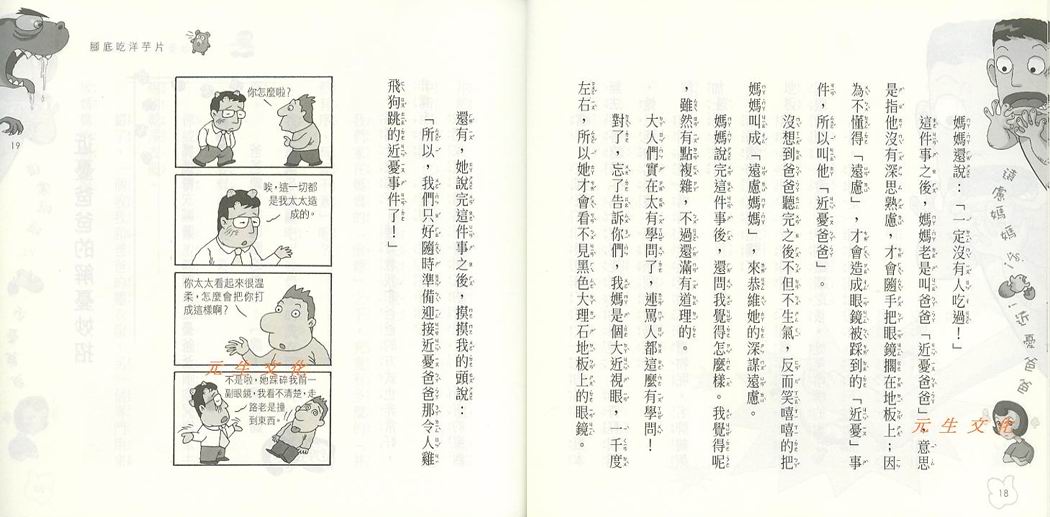 遠慮媽媽vs.近憂爸爸
媽媽還說：「一定沒有人吃過！」
這件事之後，媽媽老是叫爸爸「近憂爸爸」，意思
是指他沒有深思熟慮，才會隨手把眼鏡擱在地板上；因
為不懂得「遠慮」，才會造成眼鏡被踩到的「近憂」事
件，所以叫他「近憂爸爸」。
沒想到爸爸聽完之後不但不生氣，反而笑嘻嘻的把
媽媽叫成「遠慮媽媽」，來恭維她的深謀遠慮。
媽媽說完這件事後，還問我覺得怎麼樣。我覺得呢
，雖然有點複雜，不過還滿有道理的。
大人們實在太有學問了，連罵人都這麼有學問！
對了，忘了告訴你們，我媽是個大近視眼，一千度
左右，所以她才會看不見黑色大理石地板上的眼鏡。
18
元生文化
腳底吃洋芋片
還有，她說完這件事之後，摸摸我的頭說：
「所以，我們只好隨時準備迎接近憂爸爸那令人雞
飛狗跳的近憂事件了！」
你怎麼啦？
唉，這一切都
是我太太造
成的。
你太太看起來很溫
柔，怎麼會把你打
成這樣啊？
不是啦，她踩碎我前一
副眼鏡，我看不清楚，走
路老是撞
到東西。
元生文化
19